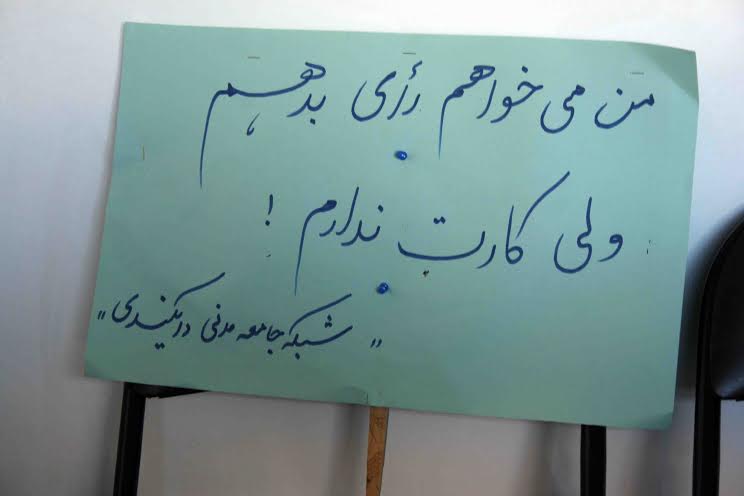 من می خواهم رأی بدهم،
ولی کارت ندارم !
"شبکه جامعه مدنی دایکندی"